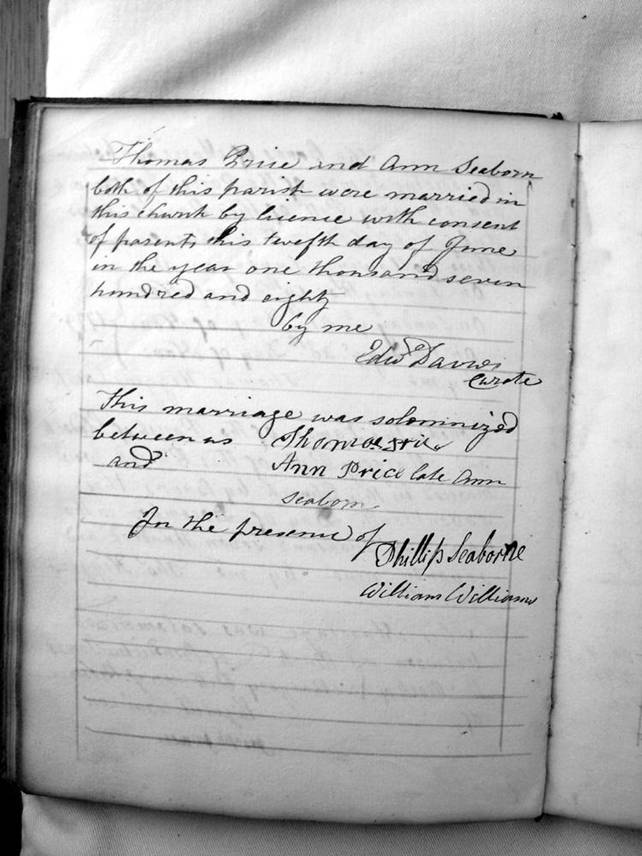 Thomas Price and Ann Seaborn
both of this parish were married in
this church by licence with consent
of parents this twefth day of June
in the year one thousand seven
hundred and eighty
by me
Edwd Davies
Curate
This marriage was solemnized
between us Thomas Price
and Ann Price late Ann
Seaborn
In the presence of
Phillip Seaborne
William Williams